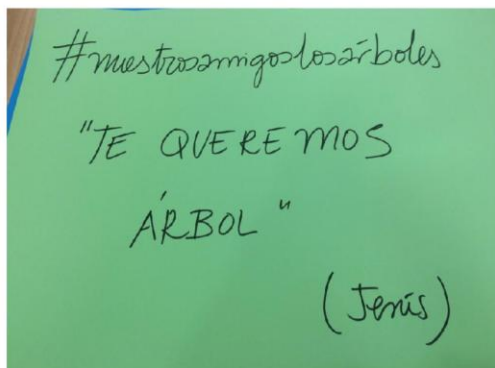 #nuestrosamigoslosárboles
"TE QUEREMOS
ÁRBOL"
(Jenis)